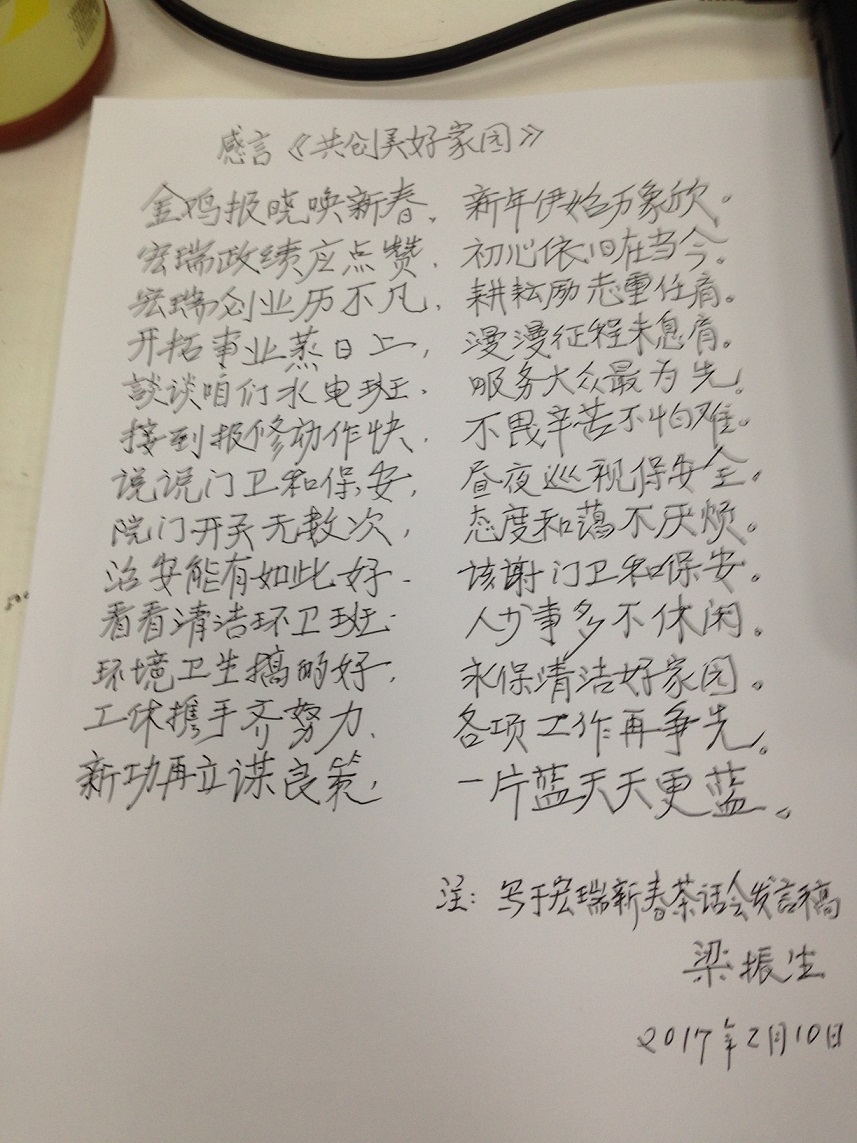 感言《共创美好家园》
金鸡报晓唤新春，新年伊始万象欣。
宏瑞政绩应点赞，初心依旧在当今。
宏瑞创业历不凡，耕耘励志重任肩。
开拓事业蒸日上，漫漫征程未息肩。
談谈咱们水电班，服务大众最为先！
接到报修动作快，不畏辛苦不怕难。
说说门卫和保安，昼夜巡视保安全。
院门开关无数次，态度和蔼不厌烦。
治安能有如此好，该謝门卫和保安。
看看清洁环卫班，人少事多不休闲。
环境卫生搞的好，永保清洁好家园。
工休携手齐努力，各项工作再争先。
新功再立谋良策，一片蓝天天更蓝。
注：写于宏瑞新春茶话会发言稿
梁振生
2017年2月10日